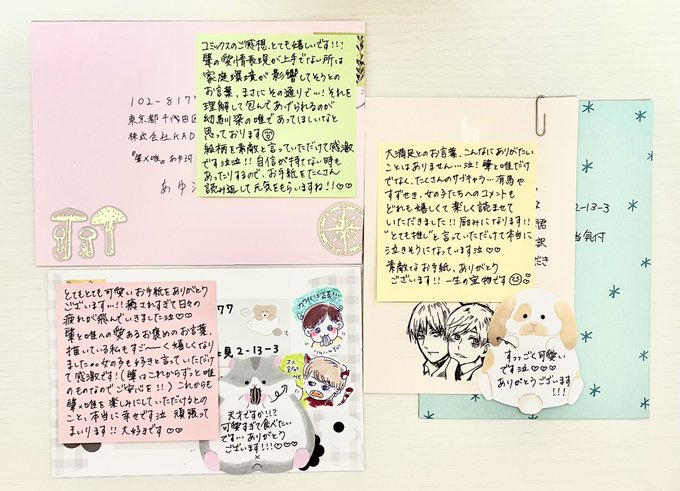 102-8177
東京都千代田区
株式会社KAD
あゆ
コミックスのご感想、とても嬉しいです!!!
肇の愛情表現が上手でない所は
家庭環境が影響してそうとの
お言葉、まさにその通りで…!それを
理解して包んであげられるのが
幼馴染の唯であってほしいなと
思っております
絵柄を素敵と言っていただけて感激
です泣泣!!自信が持てない時も
あったりするので、お手紙をたくさん
読み返して元気をもらいますね!!♡♡
大満足とのお言葉、こんなにありがたい
ことはありません…泣!肇と唯だけ
でなく、たくさんのサブキャラ…有馬や
すずせき、女の子たちへのコメントも
どれも嬉しくて楽しく読ませて
いただきました!!励みになります!!
"とても推し"と言っていただけて本当に
泣きそうになっています泣♡♡
素敵なお手紙、ありがとう
ございます!!一生の宝物です
2-13-3
気付
訳
だき
とてもとても可愛いお手紙をありがとう
ございますっ…!!癒されすぎて日々の
疲れが飛んでいきました泣♡♡
肇と唯への愛あるお褒めのお言葉、
描いている私もすご〜〜く嬉しくなり
ました。。女の子も好きと言っていただけ
て感激です!(肇はこれからずっと唯
のものなのでご安心を!!)これからも
肇×唯を楽しみにしていただけるとの
こと、本当に幸せです泣 頑張って
まいります!!大好きです♡♡
77
見2-13-3
天才ですか!!?
可愛すぎて食べたい
です…ありがとう
ございます!!!♡♡♡
すっっごく可愛い
です泣♡♡♡
ありがとうございます
!!!